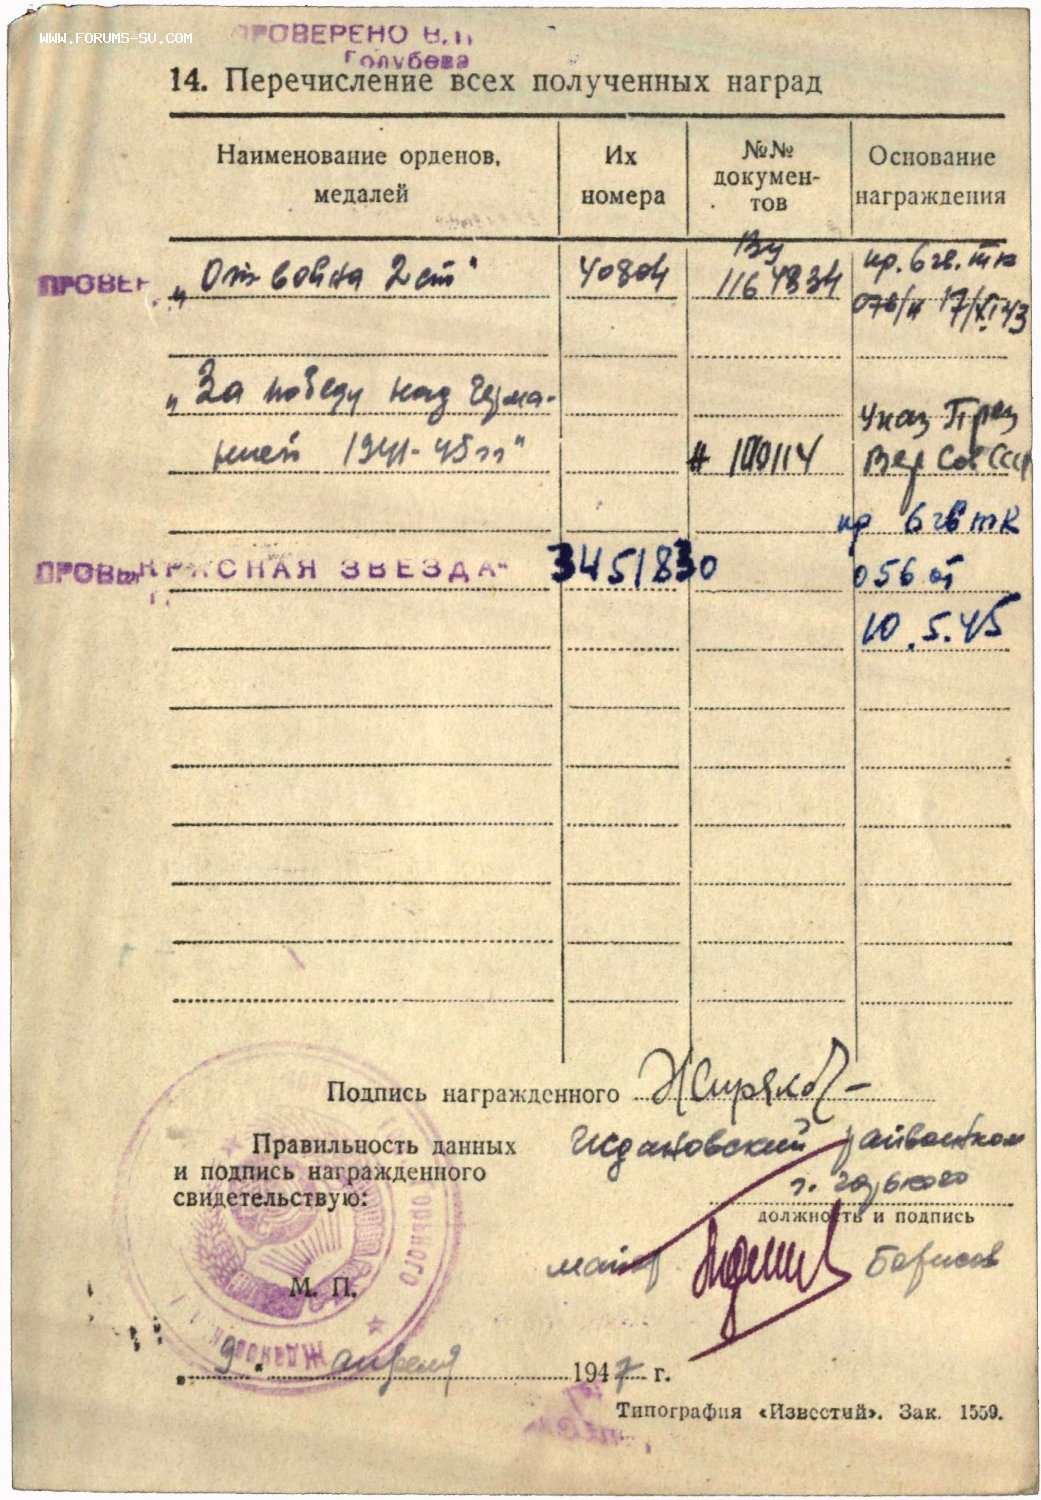 WWW.FORUMS-SU.COM
ПРОВЕРЕНО В.П
Голубева
14. Перечисление всех полученных наград
Наименование орденов,
медалей
Их
номера
№№
докумен-
тов
Основание
награждения
ПРОВЕР
„От война 2 ст"
40804
пр. 6 гв. тк
17/XI 43
„За победу над Герма-
нией 1941-45 гг"
Указ През
Вер Сов ССС
пр 6 гв тк
ПРОВЕ
КРАСНАЯ ЗВЕЗДА"
3451830
056 от
10.5.45
Подпись награжденного
Правильность данных
и подпись награжденного
свидетельствую:
Ждановский райвоенком
г. Горького
должность и подпись
майор
Борисов
М. П.
„ 9 " апреля 1947 г.
Типография «Известий». Зак. 1559.